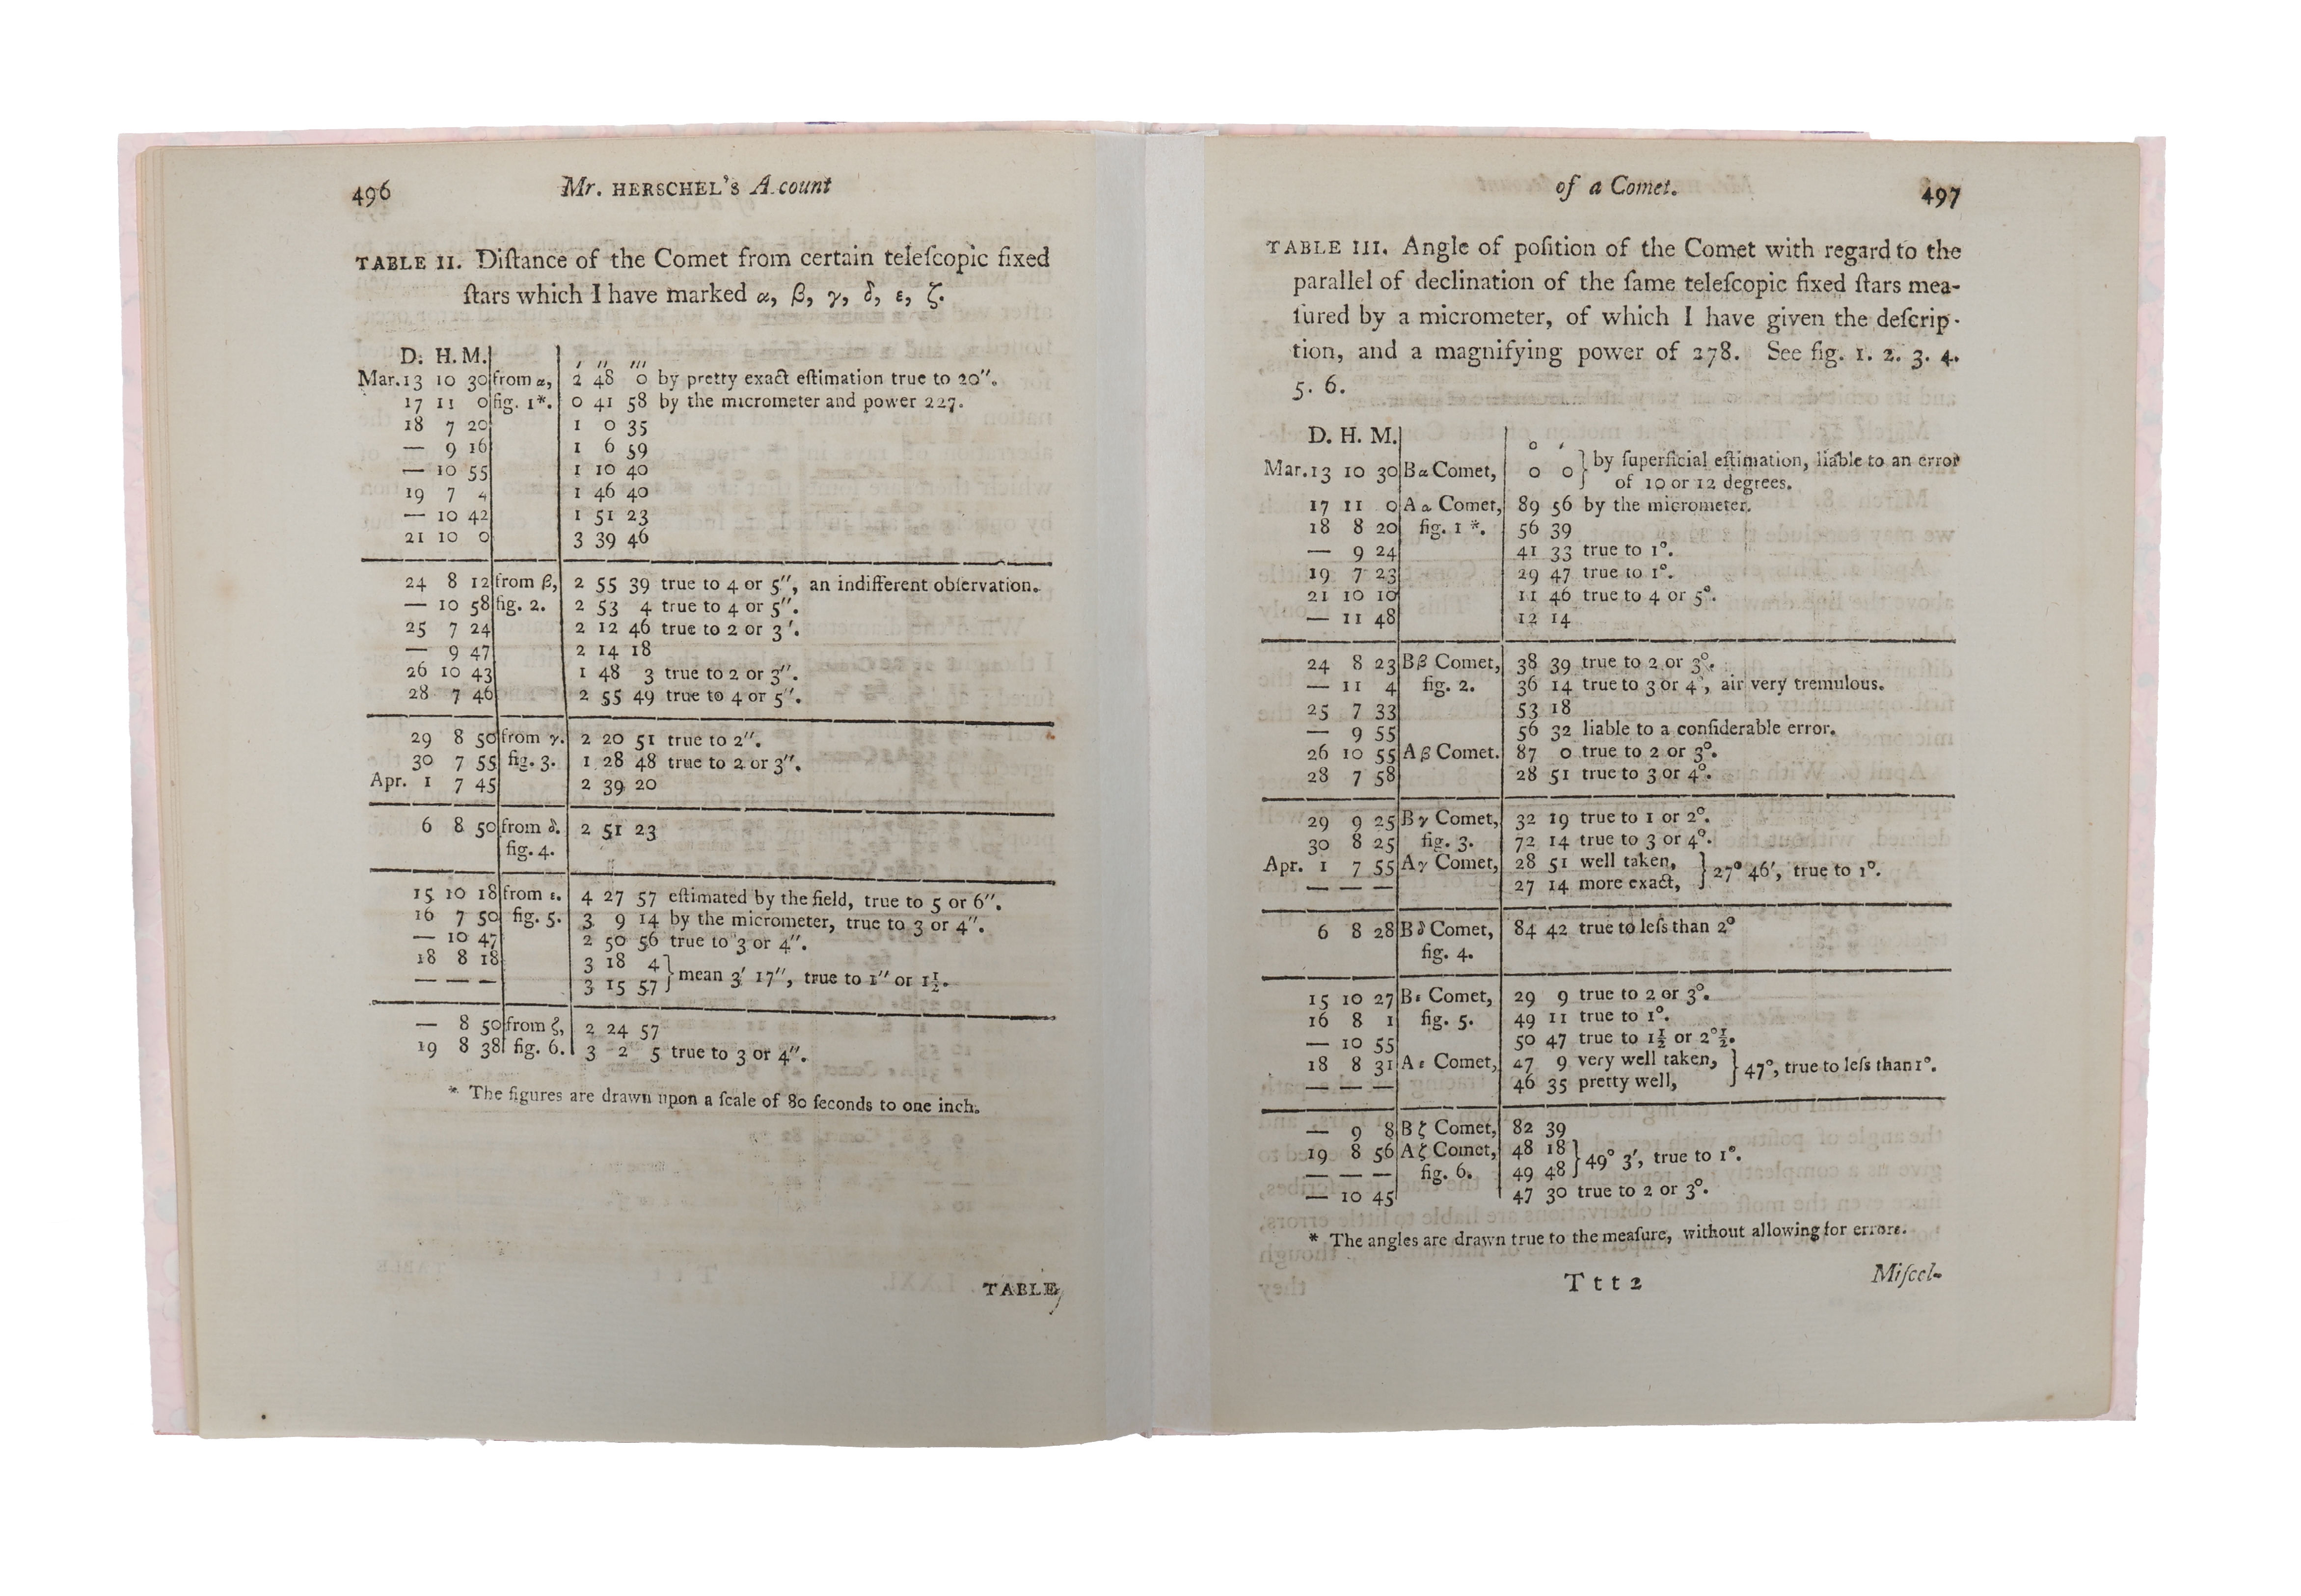 496 Mr. HERSCHEL's A count
TABLE II. Diſtance of the Comet from certain teleſcopic fixed
ſtars which I have marked α, β, γ, δ, ε, ζ.
D. H. M. ′ ″ ‴
Mar. 13 10 30 from α, 2 48 0 by pretty exact eſtimation true to 20″.
17 11 0 fig. 1*. 0 41 58 by the micrometer and power 227.
18 7 20 1 0 35
— 9 16 1 6 59
— 10 55 1 10 40
19 7 4 1 46 40
— 10 42 1 51 23
21 10 0 3 39 46
24 8 12 from β, 2 55 39 true to 4 or 5″, an indifferent obſervation.
— 10 58 fig. 2. 2 53 4 true to 4 or 5″.
25 7 24 2 12 46 true to 2 or 3′.
— 9 47 2 14 18
26 10 43 1 48 3 true to 2 or 3″.
28 7 46 2 55 49 true to 4 or 5″.
29 8 50 from γ. 2 20 51 true to 2″.
30 7 55 fig. 3. 1 28 48 true to 2 or 3″.
Apr. 1 7 45 2 39 20
6 8 50 from δ. 2 51 23
fig. 4.
15 10 18 from ε. 4 27 57 eſtimated by the field, true to 5 or 6″.
16 7 50 fig. 5. 3 9 14 by the micrometer, true to 3 or 4″.
— 10 47 2 50 56 true to 3 or 4″.
18 8 18 3 18 4 } mean 3′ 17″, true to 1″ or 1½.
— — — 3 15 57
— 8 50 from ζ, 2 24 57
19 8 38 fig. 6. 3 2 5 true to 3 or 4″.
* The figures are drawn upon a ſcale of 80 ſeconds to one inch.
TABLE
of a Comet. 497
TABLE III. Angle of poſition of the Comet with regard to the
parallel of declination of the ſame teleſcopic fixed ſtars mea-
ſured by a micrometer, of which I have given the deſcrip-
tion, and a magnifying power of 278. See fig. 1. 2. 3. 4.
5. 6.
D. H. M. ° ′
Mar. 13 10 30 B α Comet, 0 0 } by ſuperficial eſtimation, liable to an error
of 10 or 12 degrees.
17 11 0 A α Comet, 89 56 by the micrometer.
18 8 20 fig. 1 *. 56 39
— 9 24 41 33 true to 1°.
19 7 23 29 47 true to 1°.
21 10 10 11 46 true to 4 or 5°.
— 11 48 12 14
24 8 23 B β Comet, 38 39 true to 2 or 3°.
— 11 4 fig. 2. 36 14 true to 3 or 4°, air very tremulous.
25 7 33 53 18
— 9 55 56 32 liable to a conſiderable error.
26 10 55 A β Comet. 87 0 true to 2 or 3°.
28 7 58 28 51 true to 3 or 4°.
29 9 25 B γ Comet, 32 19 true to 1 or 2°.
30 8 25 fig. 3. 72 14 true to 3 or 4°.
Apr. 1 7 55 A γ Comet, 28 51 well taken, } 27° 46′, true to 1°.
— — — 27 14 more exact,
6 8 28 B δ Comet, 84 42 true to leſs than 2°
fig. 4.
15 10 27 B ε Comet, 29 9 true to 2 or 3°.
16 8 1 fig. 5. 49 11 true to 1°.
— 10 55 50 47 true to 1½ or 2°½.
18 8 31 A ε Comet, 47 9 very well taken, } 47°, true to leſs than 1°.
— — — 46 35 pretty well,
— 9 8 B ζ Comet, 82 39
19 8 56 A ζ Comet, 48 18 } 49° 3′, true to 1°.
— — — fig. 6. 49 48
— 10 45 47 30 true to 2 or 3°.
* The angles are drawn true to the meaſure, without allowing for errors.
T t t 2 Miſcel-